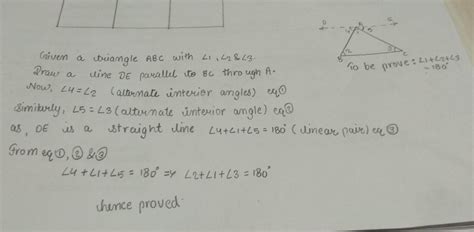 Given a triangle ABC with ∠1, ∠2 & ∠3.
Draw a line DE parallel to BC through A.
Now, ∠4 = ∠2 (alternate interior angles) eq①
Similarly, ∠5 = ∠3 (alternate interior angle) eq②
as, DE is a straight line ∠4+∠1+∠5 = 180° (linear pair) eq③
From eq①, ② & ③
∠4+∠1+∠5 = 180° => ∠2+∠1+∠3 = 180°
hence proved
A
4 1 5
2 3
B C
To be prove: ∠1+∠2+∠3
= 180°